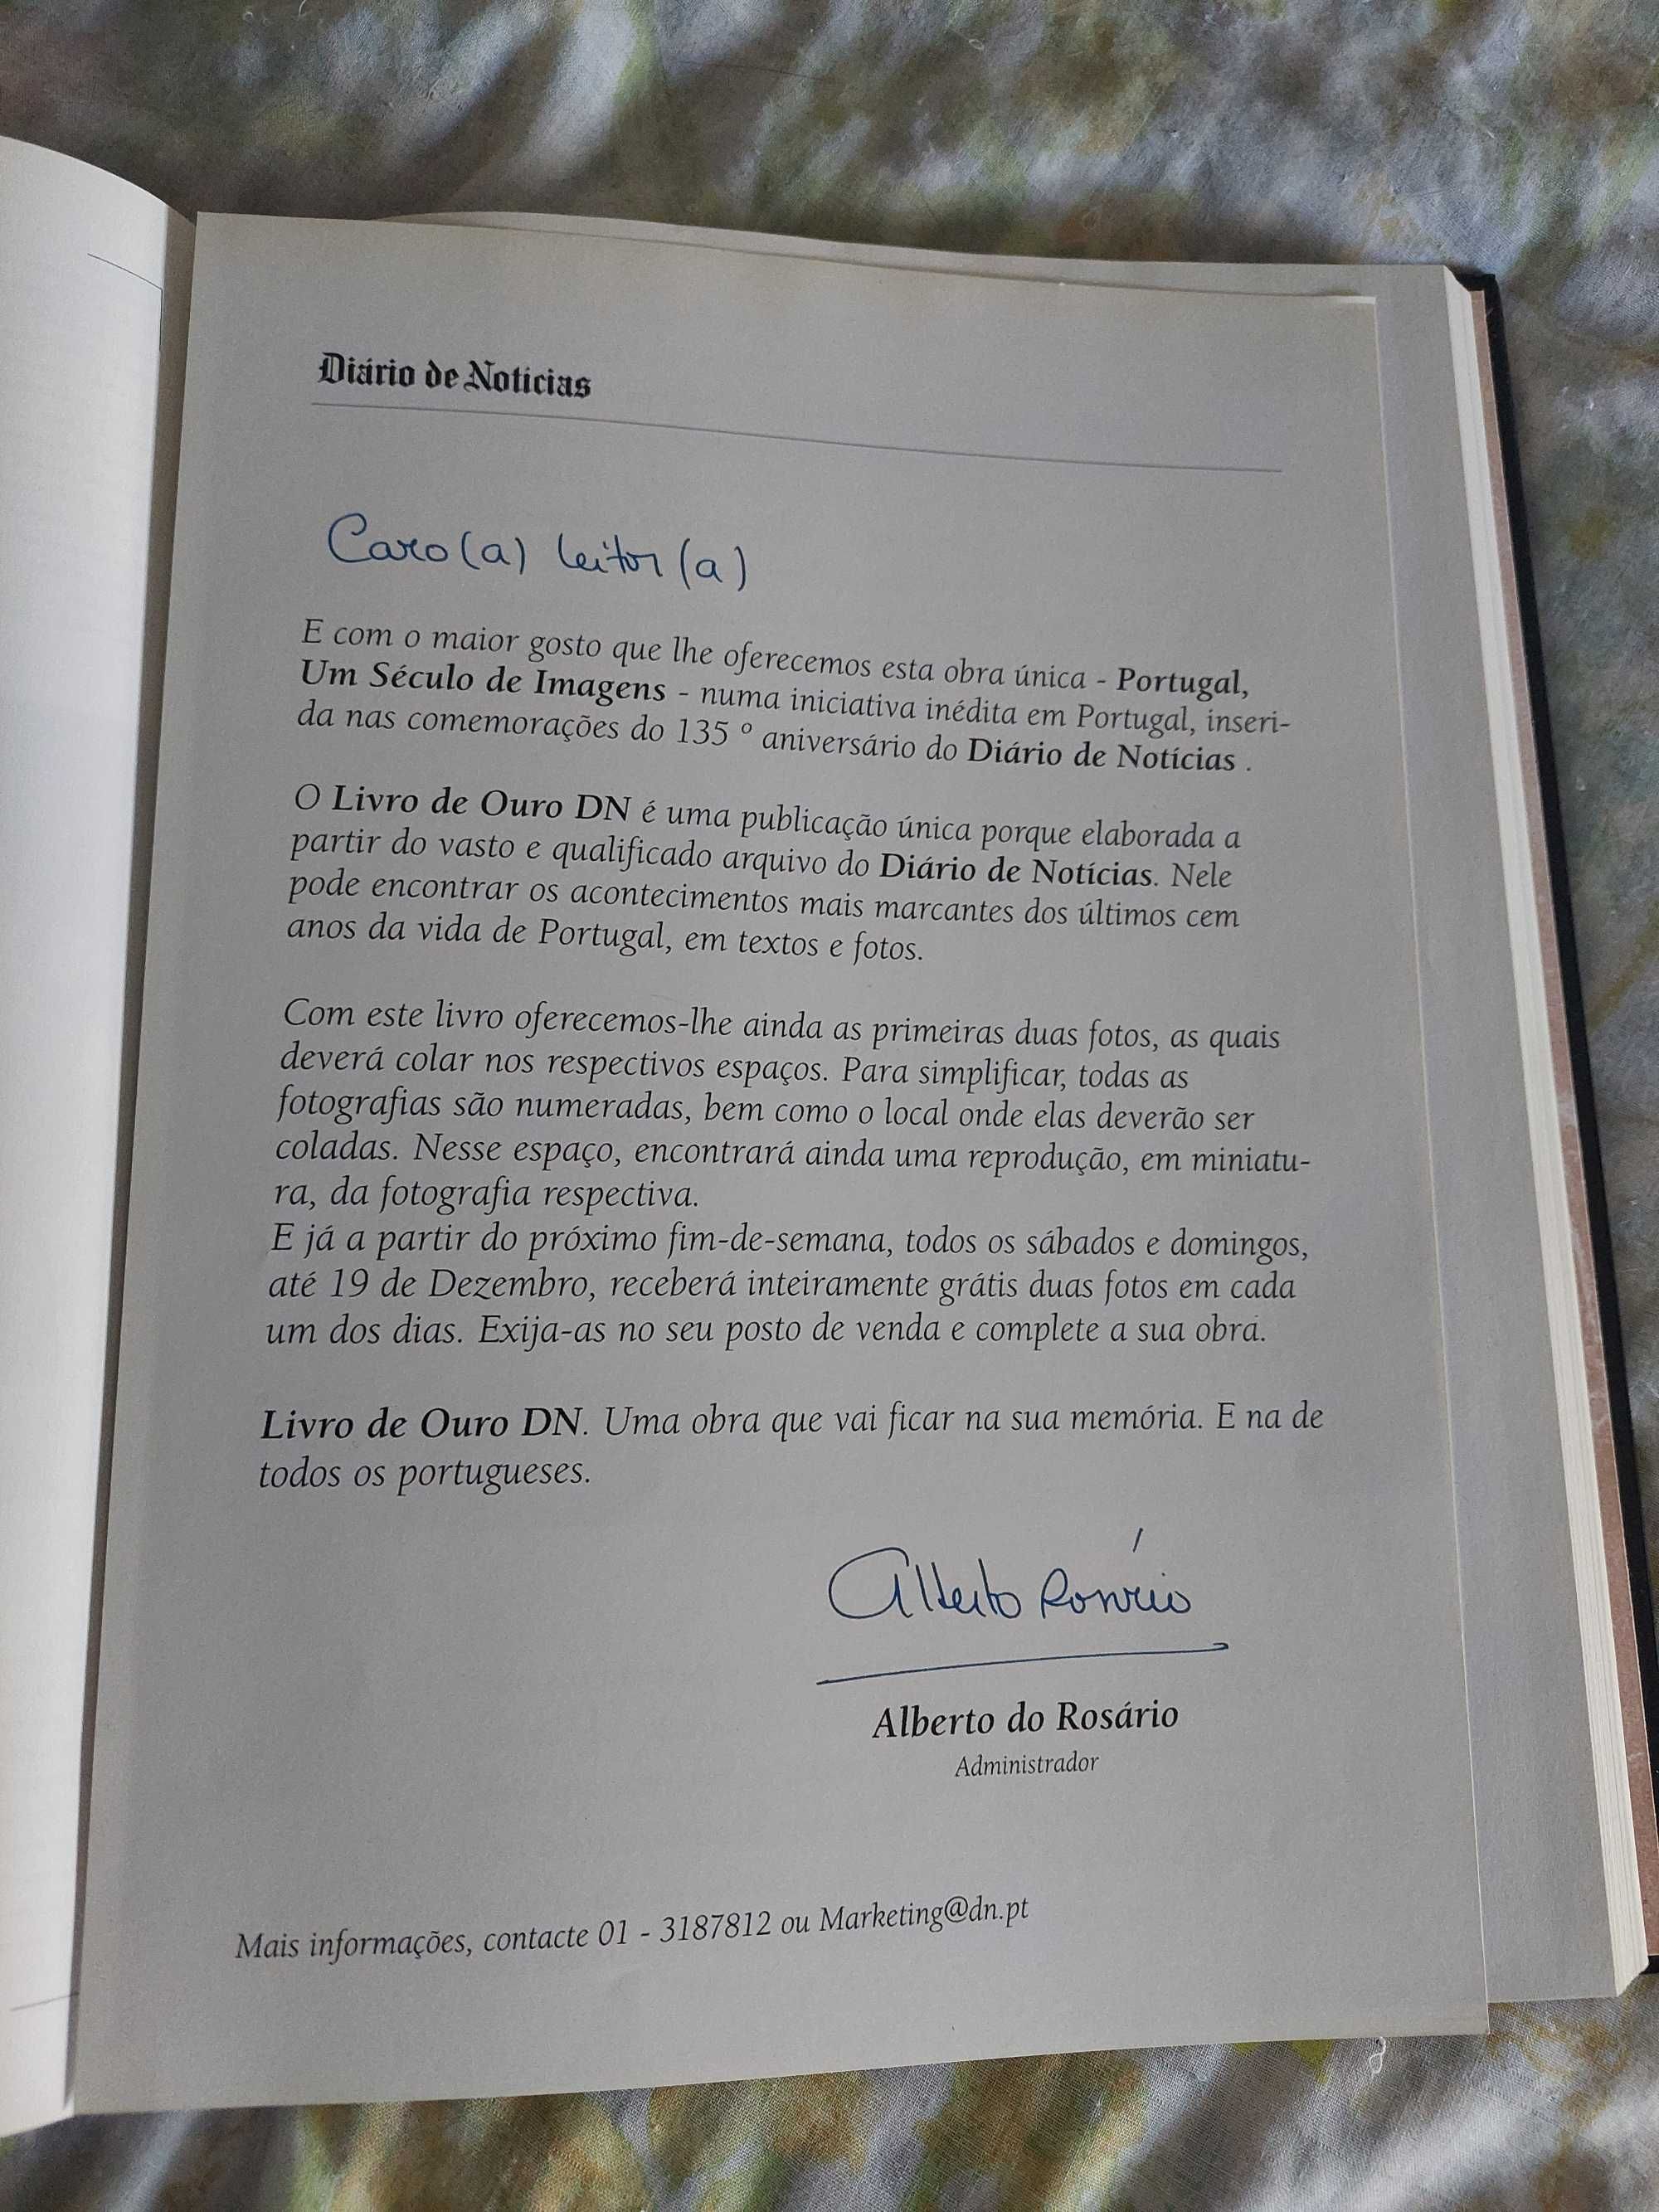 Diário de Notícias
Caro(a) leitor(a)
E com o maior gosto que lhe oferecemos esta obra única - Portugal,
Um Século de Imagens - numa iniciativa inédita em Portugal, inseri-
da nas comemorações do 135 º aniversário do Diário de Notícias .
O Livro de Ouro DN é uma publicação única porque elaborada a
partir do vasto e qualificado arquivo do Diário de Notícias. Nele
pode encontrar os acontecimentos mais marcantes dos últimos cem
anos da vida de Portugal, em textos e fotos.
Com este livro oferecemos-lhe ainda as primeiras duas fotos, as quais
deverá colar nos respectivos espaços. Para simplificar, todas as
fotografias são numeradas, bem como o local onde elas deverão ser
coladas. Nesse espaço, encontrará ainda uma reprodução, em miniatu-
ra, da fotografia respectiva.
E já a partir do próximo fim-de-semana, todos os sábados e domingos,
até 19 de Dezembro, receberá inteiramente grátis duas fotos em cada
um dos dias. Exija-as no seu posto de venda e complete a sua obra.
Livro de Ouro DN. Uma obra que vai ficar na sua memória. E na de
todos os portugueses.
Alberto Rosário
Alberto do Rosário
Administrador
Mais informações, contacte 01 - 3187812 ou Marketing@dn.pt